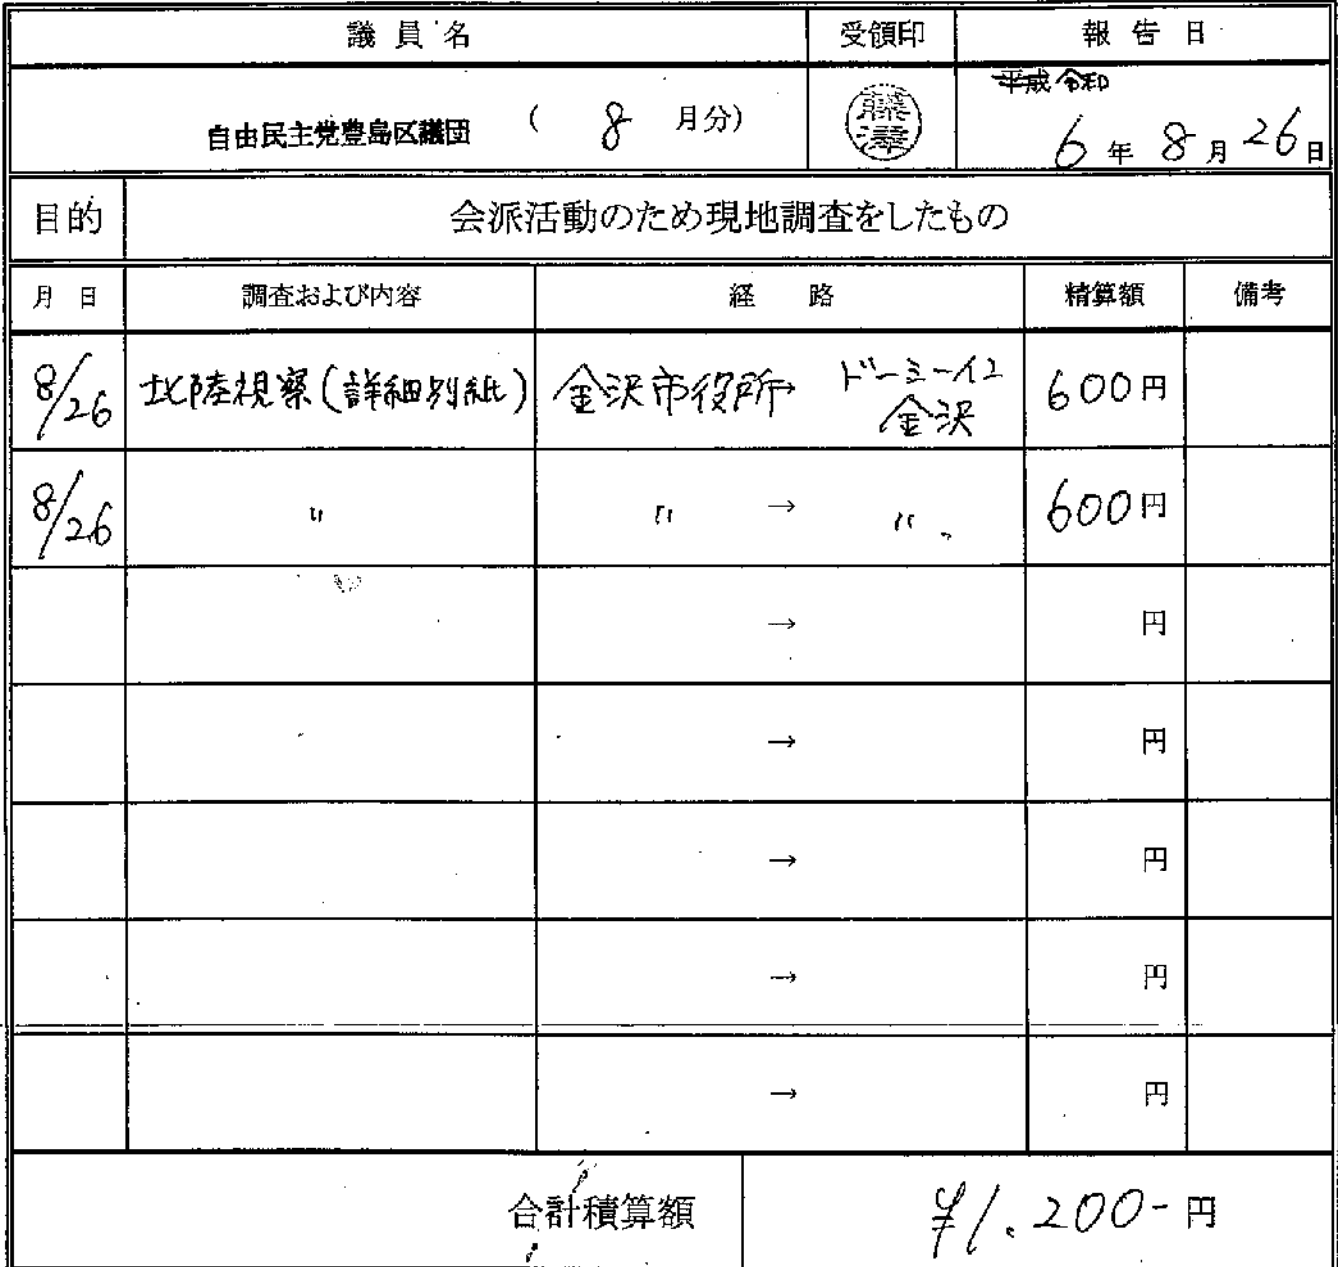 議員名 受領印 報告日
自由民主党豊島区議団 ( 8 月分) 藤澤 平成 令和
6 年 8 月 26 日
目的 会派活動のため現地調査をしたもの
月 日 調査および内容 経 路 精算額 備考
8/26 北陸視察(詳細別紙) 金沢市役所→ ドーミーイン金沢 600円
8/26 〃 〃 → 〃 600円
→ 円
→ 円
→ 円
→ 円
→ 円
合計積算額 ¥1.200-円